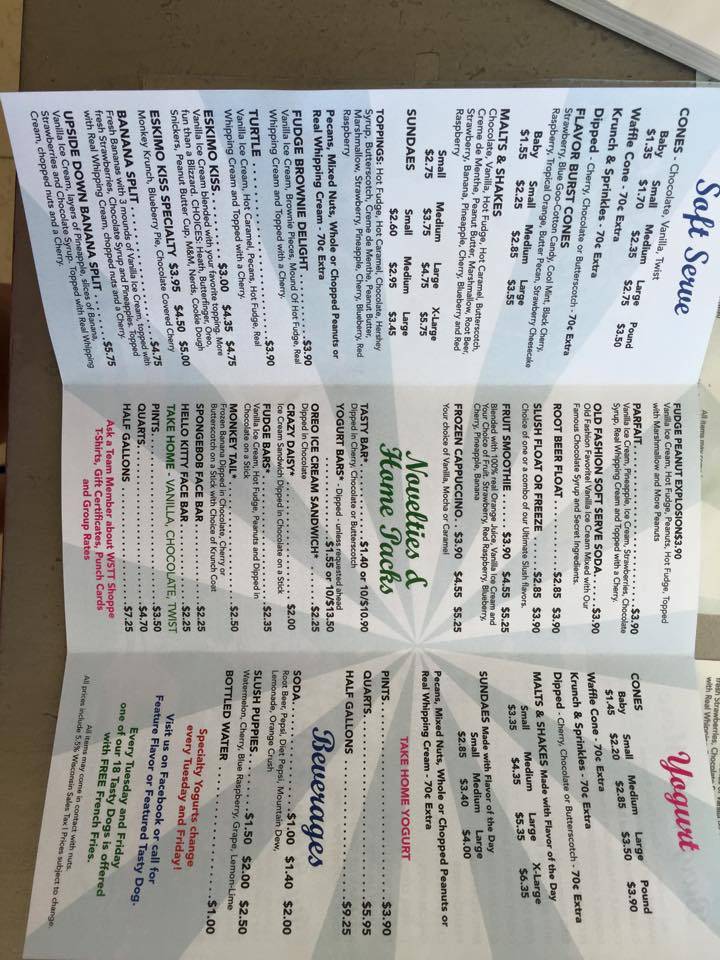 Soft Serve
CONES - Chocolate, Vanilla, Twist
Baby Small Medium Large Pound
$1.35 $1.70 $2.35 $2.75 $3.50
Waffle Cone - 70¢ Extra
Krunch & Sprinkles - 70¢ Extra
Dipped - Cherry, Chocolate or Butterscotch - 70¢ Extra
FLAVOR BURST CONES
Strawberry, Blue Goo-Cotton Candy, Cool Mint, Black Cherry,
Raspberry, Tropical Orange, Butter Pecan, Strawberry Cheesecake
Baby Small Medium Large
$1.55 $2.25 $2.85 $3.55
MALTS & SHAKES
Chocolate, Vanilla, Hot Fudge, Hot Caramel, Butterscotch,
Creme de Menthe, Peanut Butter, Marshmallow, Root Beer,
Strawberry, Banana, Pineapple, Cherry, Blueberry and Red
Raspberry
Small Medium Large X-Large
$2.75 $3.75 $4.75 $5.75
SUNDAES Small Medium Large
$2.60 $2.95 $3.45
TOPPINGS: Hot Fudge, Hot Caramel, Chocolate, Hershey
Syrup, Butterscotch, Creme de Menthe, Peanut Butter,
Marshmallow, Strawberry, Pineapple, Cherry, Blueberry, Red
Raspberry
Pecans, Mixed Nuts, Whole or Chopped Peanuts or
Real Whipping Cream - 70¢ Extra
FUDGE BROWNIE DELIGHT. . . . . . . . . . $3.90
Vanilla Ice Cream, Brownie Pieces, Mound Of Hot Fudge, Real
Whipping Cream and Topped with a Cherry.
TURTLE . . . . . . . . . . . . . . . . . . . . $3.90
Vanilla Ice Cream, Hot Caramel, Pecans, Hot Fudge, Real
Whipping Cream and Topped with a Cherry.
ESKIMO KISS. . . . . . . . . $3.00 $4.35 $4.75
Vanilla Ice Cream blended with your favorite topping. More
fun than a Blizzard. CHOICES: Heath, Butterfinger, Oreo,
Snickers, Peanut Butter Cup, M&M, Nerds, Cookie Dough
ESKIMO KISS SPECIALTY $3.95 $4.50 $5.00
Monkey Krunch, Blueberry Pie, Chocolate Covered Cherry
BANANA SPLIT . . . . . . . . . . . . . . . . $4.75
Fresh Bananas with 3 mounds of Vanilla Ice Cream, topped with
fresh Strawberries, Chocolate Syrup and Pineapples. Topped
with Real Whipping Cream, chopped nuts and a Cherry.
UPSIDE DOWN BANANA SPLIT . . . . . . . $5.75
Vanilla Ice Cream, layers of Pineapple, slices of Banana,
Strawberries and Chocolate Syrup. Topped with Real Whipping
Cream, chopped nuts and a Cherry.
FUDGE PEANUT EXPLOSION $3.90
Vanilla Ice Cream, Hot Fudge, Peanuts, Hot Fudge, Topped
with Marshmallow and More Peanuts
PARFAIT. . . . . . . . . . . . . . . . . . . . $3.90
Vanilla Ice Cream, Pineapple, Ice Cream, Strawberries, Chocolate
Syrup, Real Whipping Cream and Topped with a Cherry.
OLD FASHION SOFT SERVE SODA. . . . . . $3.90
Old Fashion Favorite! Vanilla Ice Cream Mixed with Our
Famous Chocolate Syrup and Secret Ingredients.
ROOT BEER FLOAT . . . . . . . . . $2.85 $3.90
SLUSH FLOAT OR FREEZE . . . . . . $2.85 $3.90
Choice of one or a combo of our Ultimate Slush flavors.
FRUIT SMOOTHIE. . . . . . . . $3.90 $4.55 $5.25
Blended with 100% real Orange Juice, Vanilla Ice Cream and
Your Choice of Fruit. Strawberry, Red Raspberry, Blueberry,
Cherry, Pineapple, Banana
FROZEN CAPPUCCINO . . $3.90 $4.55 $5.25
Your choice of Vanilla, Mocha or Caramel
Novelties &
Home Packs
TASTY BAR* . . . . . . . . . . $1.40 or 10/$10.90
Dipped in Cherry, Chocolate or Butterscotch
YOGURT BARS* - Dipped - unless requested ahead
. . . . . . . . . . . . . . . $1.55 or 10/$13.50
OREO ICE CREAM SANDWICH* . . . . . . . $2.25
Dipped in Chocolate
CRAZY DAISY* . . . . . . . . . . . . . . . . . $2.00
Ice Cream Sandwich Dipped In Chocolate on a Stick
FUDGE BARS* . . . . . . . . . . . . . . . . . $2.35
Vanilla Ice Cream, Hot Fudge, Peanuts and Dipped in
Chocolate on a Stick
MONKEY TAIL* . . . . . . . . . . . . . . . . . $2.50
Frozen Banana Dipped in Chocolate, Cherry or
Butterscotch on a Stick with Choice of Krunch Coat
SPONGEBOB FACE BAR . . . . . . . . . . . $2.25
HELLO KITTY FACE BAR. . . . . . . . . . . $2.25
TAKE HOME - VANILLA, CHOCOLATE, TWIST
PINTS. . . . . . . . . . . . . . . . . . . . . . $3.50
QUARTS. . . . . . . . . . . . . . . . . . . . . $4.70
HALF GALLONS . . . . . . . . . . . . . . . . $7.25
Ask a Team Member about WSTT Shoppe
T-Shirts, Gift Certificates, Punch Cards
and Group Rates
Yogurt
CONES Small Medium Large Pound
Baby
$1.45 $2.20 $2.85 $3.50 $3.90
Waffle Cone - 70¢ Extra
Krunch & Sprinkles - 70¢ Extra
Dipped - Cherry, Chocolate or Butterscotch - 70¢ Extra
MALTS & SHAKES Made with Flavor of the Day
Small Medium Large X-Large
$3.35 $4.35 $5.35 $6.35
SUNDAES Made with Flavor of the Day
Small Medium Large
$2.85 $3.40 $4.00
Pecans, Mixed Nuts, Whole or Chopped Peanuts or
Real Whipping Cream - 70¢ Extra
TAKE HOME YOGURT
PINTS. . . . . . . . . . . . . . . . . . . . . . $3.90
QUARTS. . . . . . . . . . . . . . . . . . . . . $5.95
HALF GALLONS . . . . . . . . . . . . . . . . $9.25
Beverages
SODA. . . . . . . . . . . . . $1.00 $1.40 $2.00
Root Beer, Pepsi, Diet Pepsi, Mountain Dew,
Lemonade, Orange Crush
SLUSH PUPPIES. . . . . . . . $1.50 $2.00 $2.50
Watermelon, Cherry, Blue Raspberry, Grape, Lemon-Lime
BOTTLED WATER . . . . . . . . . . . . . . . $1.00
Specialty Yogurts change
every Tuesday and Friday!
Visit us on Facebook or call for
Feature Flavor or Featured Tasty Dog.
Every Tuesday and Friday
one of our 18 Tasty Dogs is offered
with FREE French Fries.
All items may come in contact with nuts.
All prices include 5.5% Wisconsin Sales Tax | Prices subject to change.